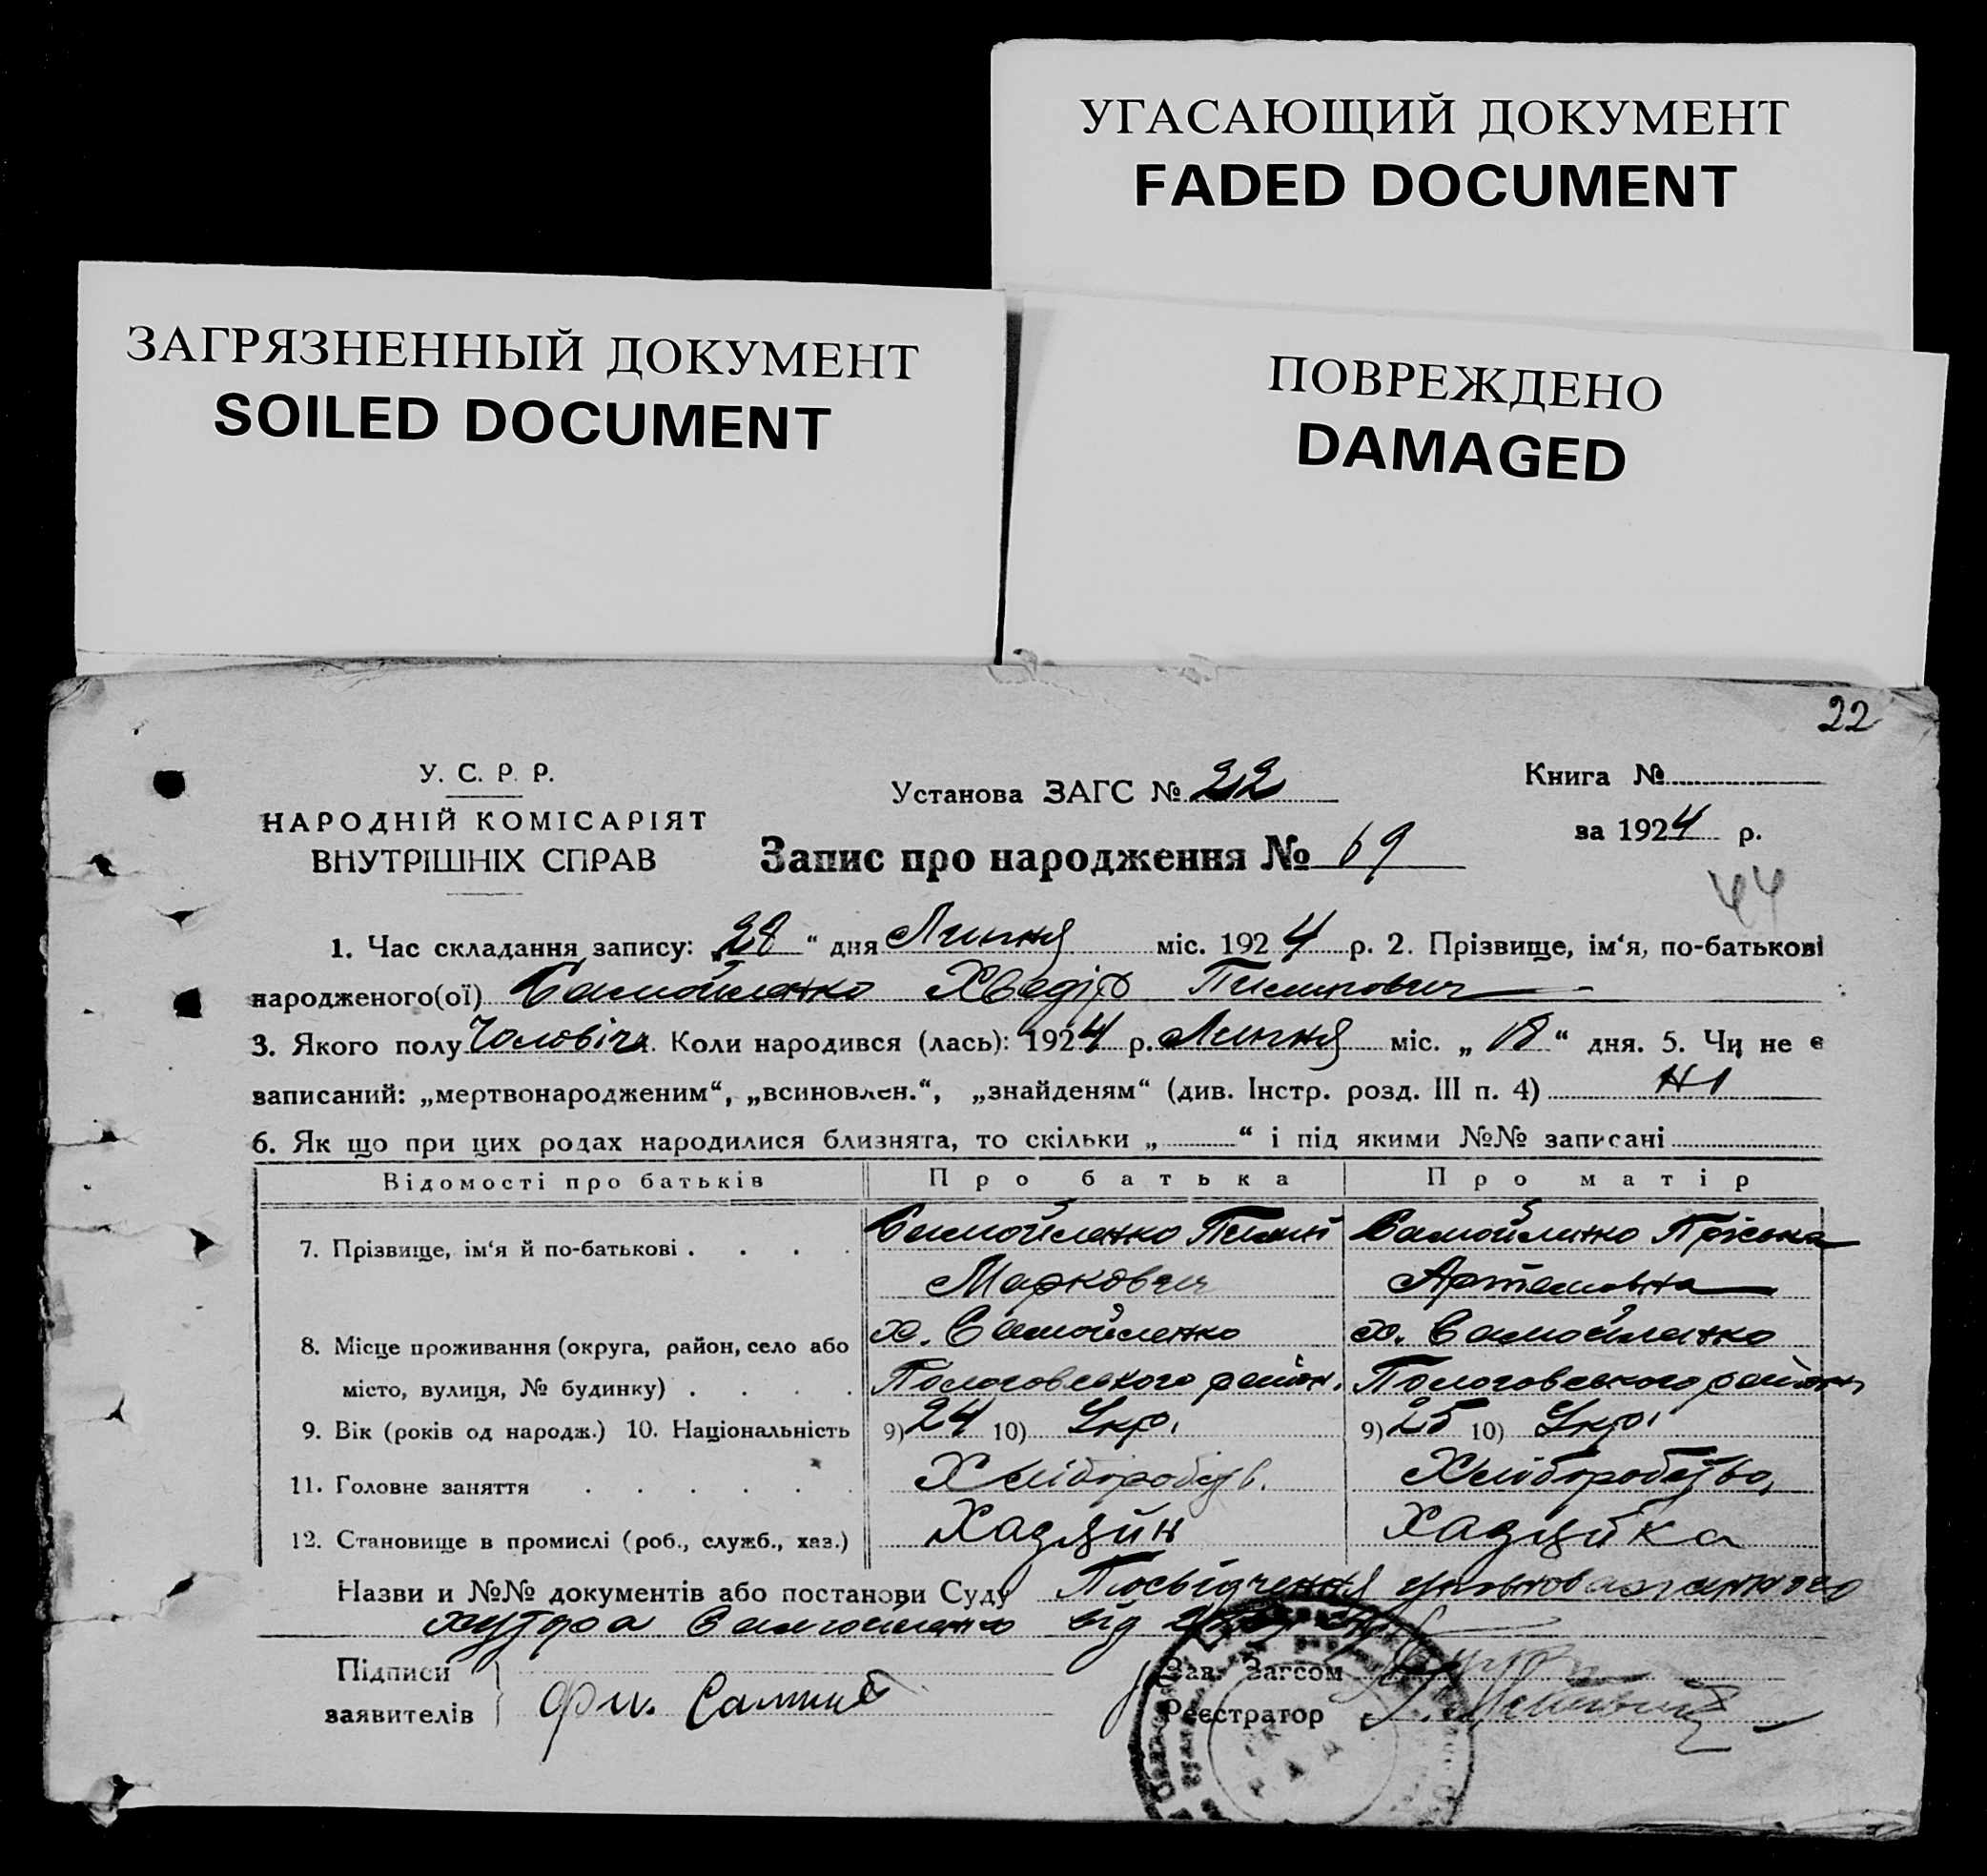 УГАСАЮЩИЙ ДОКУМЕНТ
FADED DOCUMENT
ЗАГРЯЗНЕННЫЙ ДОКУМЕНТ
SOILED DOCUMENT
ПОВРЕЖДЕНО
DAMAGED
22
У. С. Р. Р.
НАРОДНІЙ КОМІСАРІЯТ
ВНУТРІШНІХ СПРАВ
Установа ЗАГС № 22
Книга №
за 1924 р.
Запис про народження № 69
44
1. Час складання запису: „28“ дня Липня міс. 1924 р. 2. Прізвище, ім‘я, по-батькові
народженого(ої) Самойленко Хведір Пилипович
3. Якого полу Чоловіч. Коли народився (лась): 1924 р. Липня міс. „18“ дня. 5. Чи не є
записаний: „мертвонародженим“, „всиновлен.“, „знайденям“ (див. Інстр. розд. III п. 4) Ні
6. Як що при цих родах народилися близнята, то скільки „ “ і під якими №№ записані
Відомості про батьків Про батька Про матір
7. Прізвище, ім‘я й по-батькові . . . . Самойленко Пилип Самойленко Пріська
Маркович Артемовна
8. Місце проживання (округа, район, село або х. Самойленко х. Самойленко
місто, вулиця, № будинку) . . . . Пологовського район. Пологовського району
9. Вік (років од народж.) 10. Національність 9) 24 10) Укр. 9) 25 10) Укр.
11. Головне заняття . . . . . . Хліборобств. Хліборобство,
12. Становище в промислі (роб., служб., хаз.) Хазяйн Хазяйка
Назви и №№ документів або постанови Суду Посвідчення уповноваженного
хутора Самойленко від
Підписи
заявителів
Зав. Загсом
Реєстратор